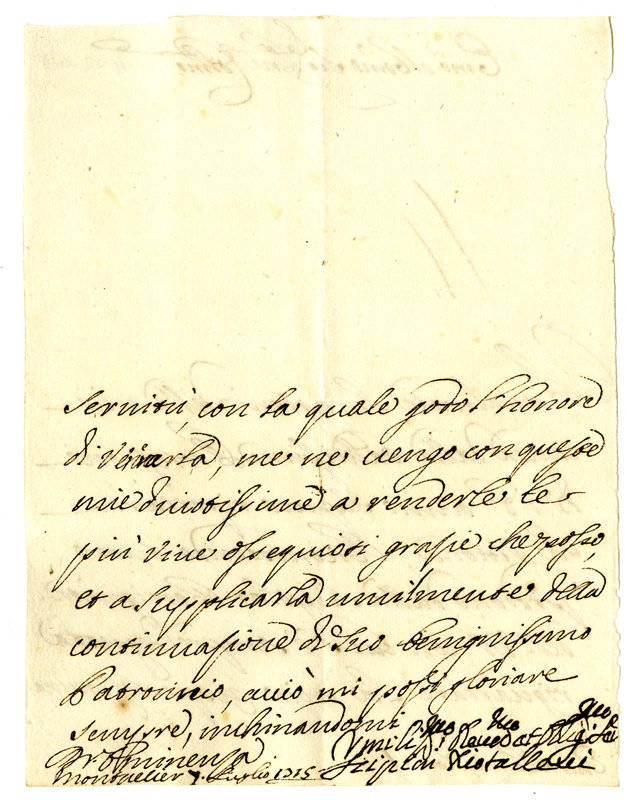 seruitù, con la quale godo l'honore
di Viuerla, me ne vengo con queste
mie diuotissime a renderle le
più viue ossequiosi grasie che posso,
et a supplicarla umilmente della
continuasione di suo benignissimo
Patrocinio, acciò mi possi gloriare
sempre, inchinandomi
Vr.a Eminensa
Montpelier Luglio 1715
Vmiliss.mo Deuot.mo